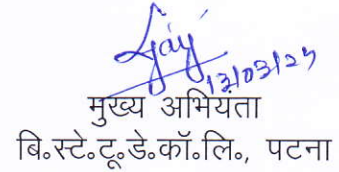 13/03/25
मुख्य अभियता
बि॰स्टे॰टू॰डे॰कॉ॰लि॰, पटना